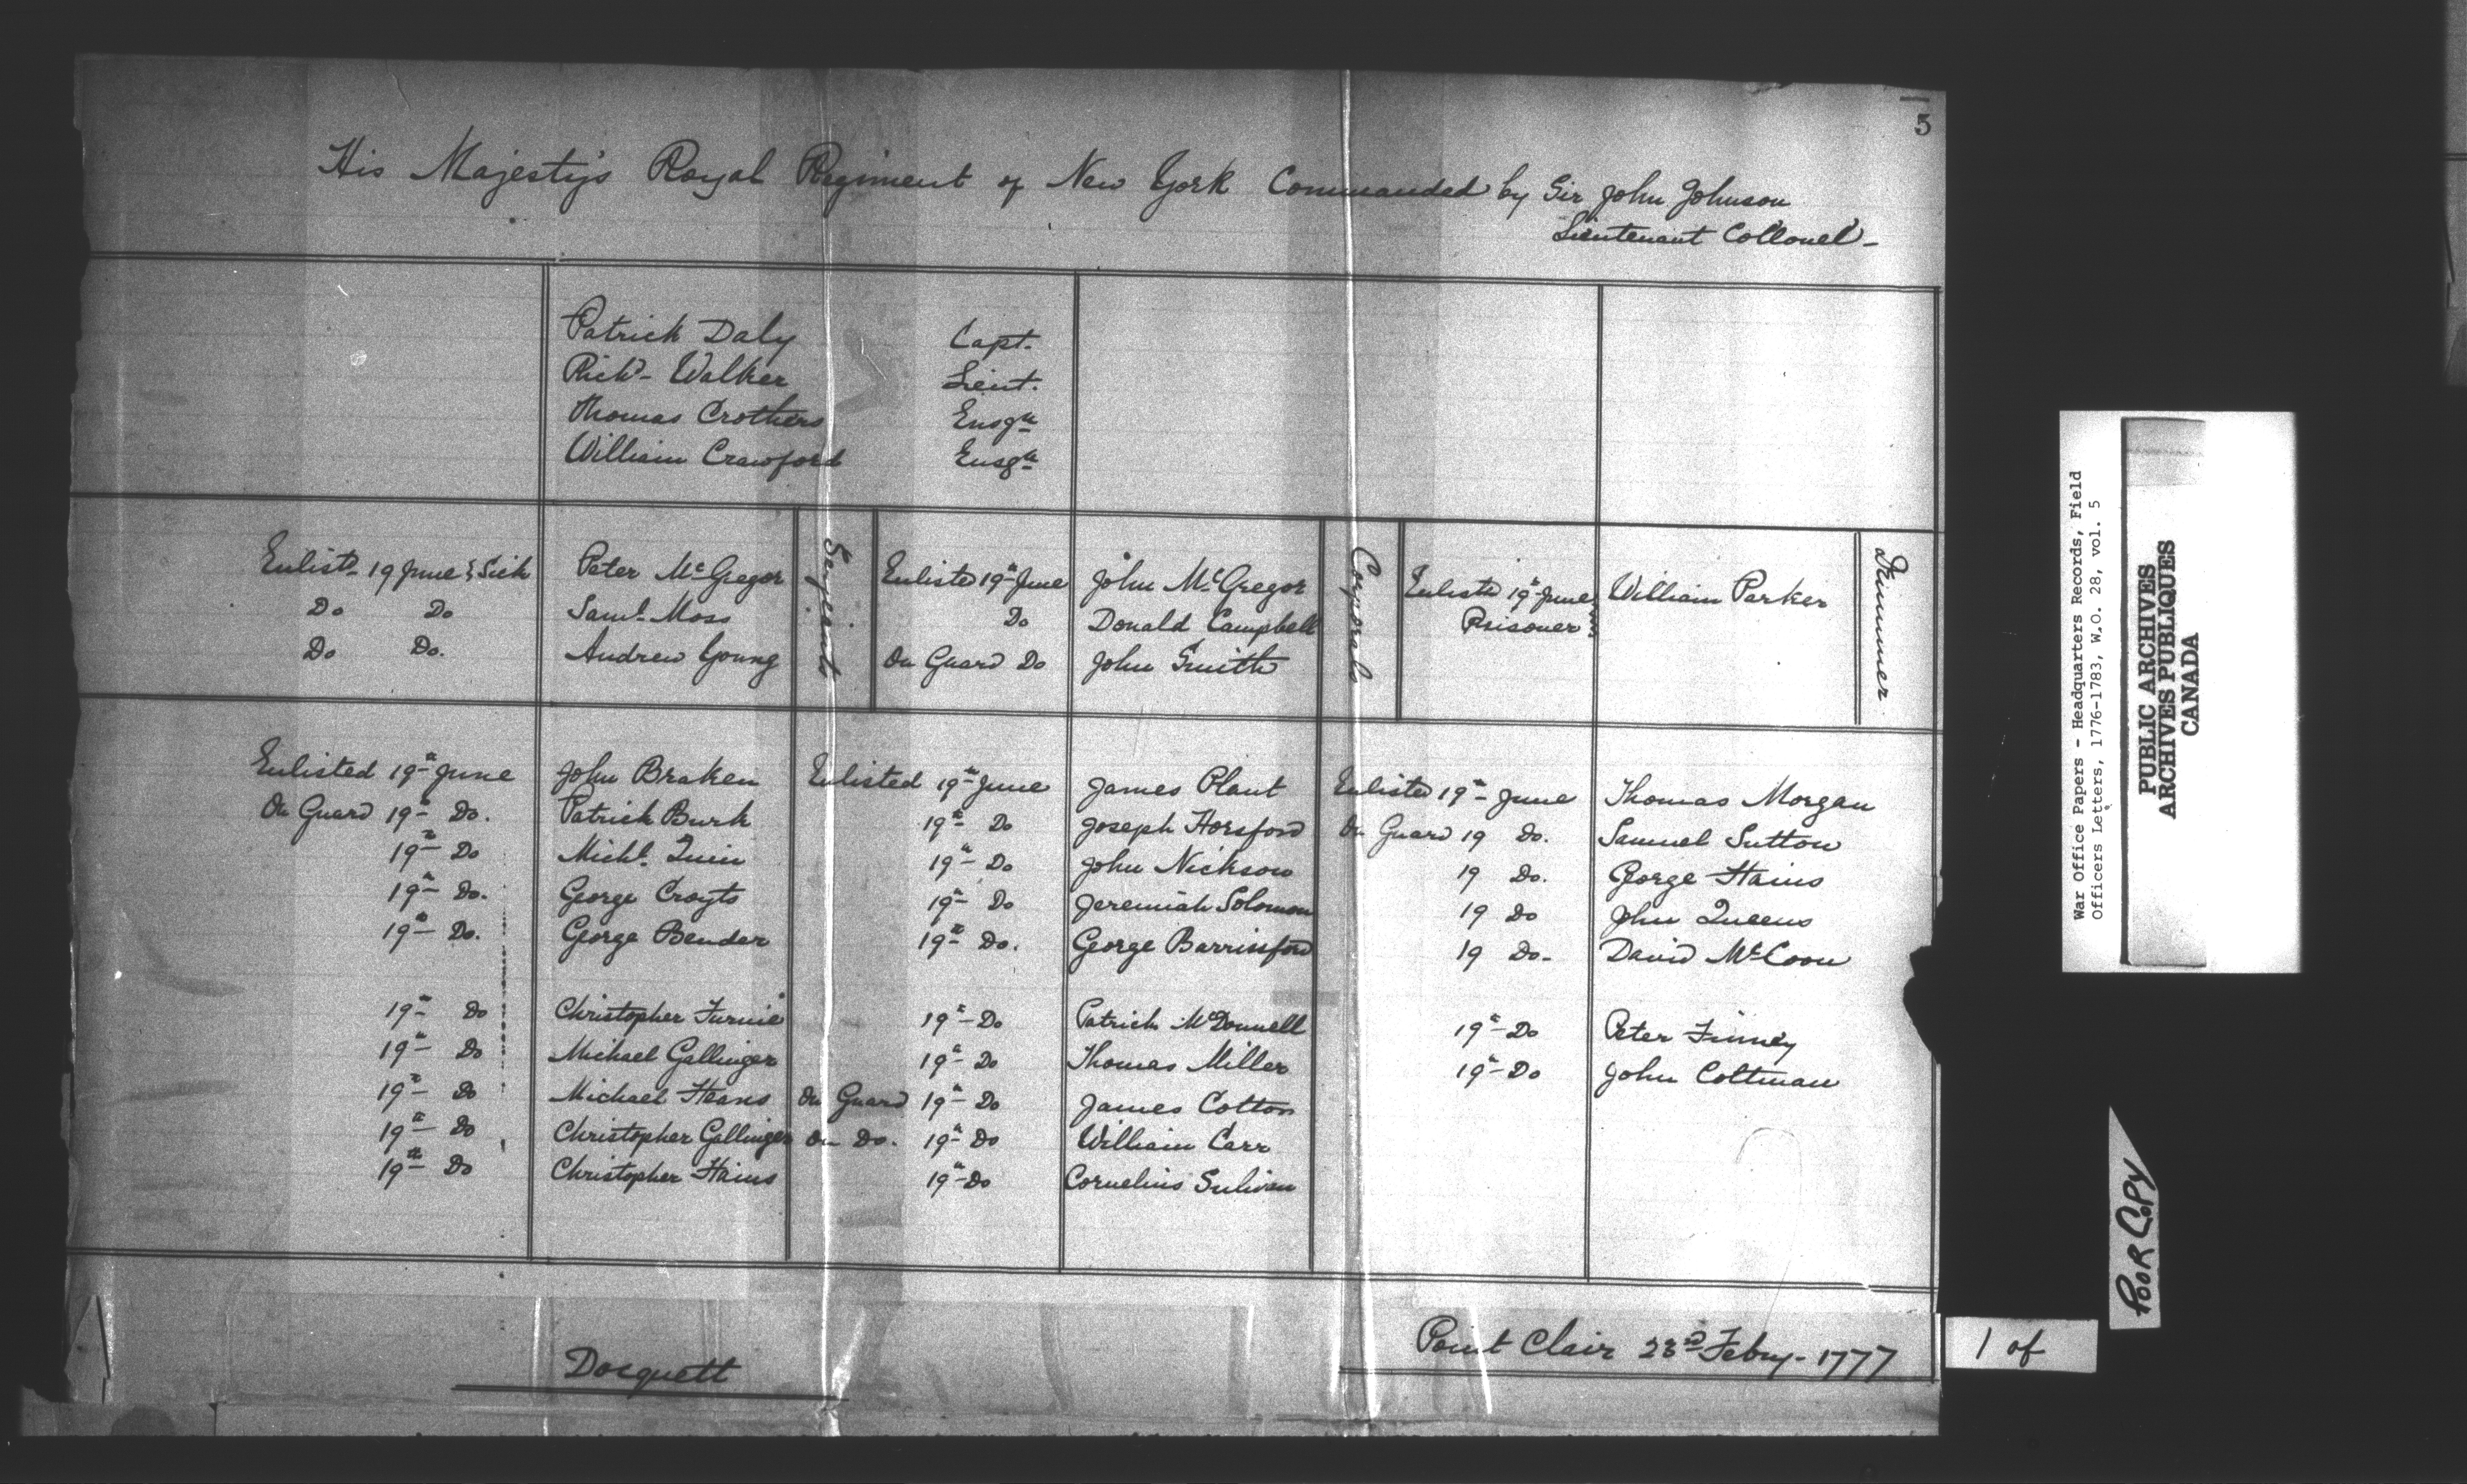 5
His Majesty's Royal Regiment of New York Commanded by Sir John Johnson
Lieutenant Collonel -
Patrick Daly Capt.
Richd- Walker Lieut.
Thomas Crothers Ensgn
William Crawford Ensgn
Enlistd- 19 June & Sick Peter McGregor
Do Do Saml. Moss
Do Do. Andrew Young
Serjeants
Enlisted 19th June John McGregor
Do Donald Campbell
On Guard Do John Smith
Corporals
Enlisted 19th June William Parker
Prisoner
Drummer
Enlisted 19th June John Braken
On Guard 19th Do. Patrick Burk
19th Do Michl. Quin
19th Do. George Croyts
19th Do. George Bender
19th Do Christopher Furnie
19th Do Michael Gallinger
19th Do Michael Heans
19th Do Christopher Gallinger
19th Do Christopher Hains
Enlisted 19th June James Plant
19th Do Joseph Horsford
19th Do John Nickson
19th Do Jeremiah Solomon
19th Do. George Barrinsford
19th Do Patrick McDonnell
19th Do Thomas Miller
On Guard 19th Do James Cotton
On Do. 19th Do William Carr
19th Do Cornelius Sulivan
Enlisted 19th June Thomas Morgan
On Guard 19 Do. Samuel Sutton
19 Do. George Hains
19 Do John Queens
19 Do- David McCoon
19th Do Peter Finney
19th Do John Coltman
Docquett
Point Clair 23rd Febry- 1777
War Office Papers - Headquarters Records, Field
Officers Letters, 1776-1783, W.O. 28, vol. 5
PUBLIC ARCHIVES
ARCHIVES PUBLIQUES
CANADA
POOR COPY
1 of